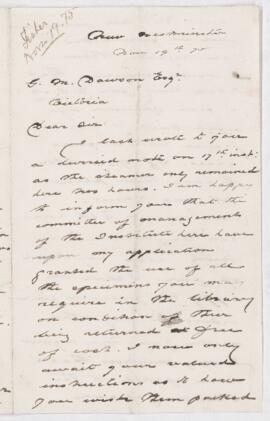 Fisher
Nov. 19. 75
New Westminster
Nov 19th 75
G. M. Dawson Esqr
Victoria
Dear Sir
I last wrote to you
a hurried note on 17th inst:
as the steamer only remained
here two hours. I am happy
to inform you that the
committee of management
of the Institute here have
upon my application
granted the use of all
the specimens you may
require in the library
on condition of their
being returned free
of cost. I now only
await your valued
instructions as to how
you wish them packed